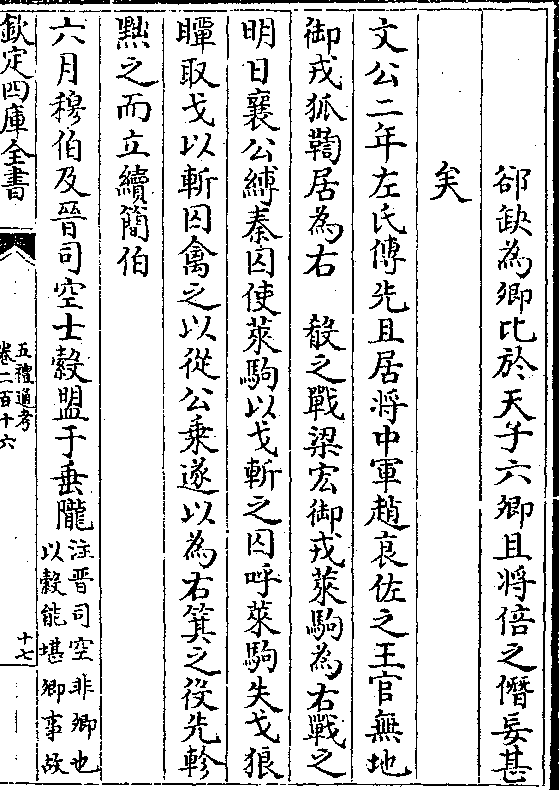 郤缺為卿比於天子六卿且將倍之僭妄甚
矣
文公二年左氏傳先且居將中軍趙衰佐之王官無地
御戎狐鞫居為右　殽之戰梁宏御戎萊駒為右戰之
明日襄公縛秦囚使萊駒以戈斬之囚呼萊駒失戈狼
瞫取戈以斬囚禽之以從公乘遂以為右箕之役先軫
黜之而立續簡伯
六月穆伯及晉司空士縠盟于垂隴注晉司空非卿也
以縠能堪卿事故
欽定四庫全書
五禮通考
卷二百十六
十七